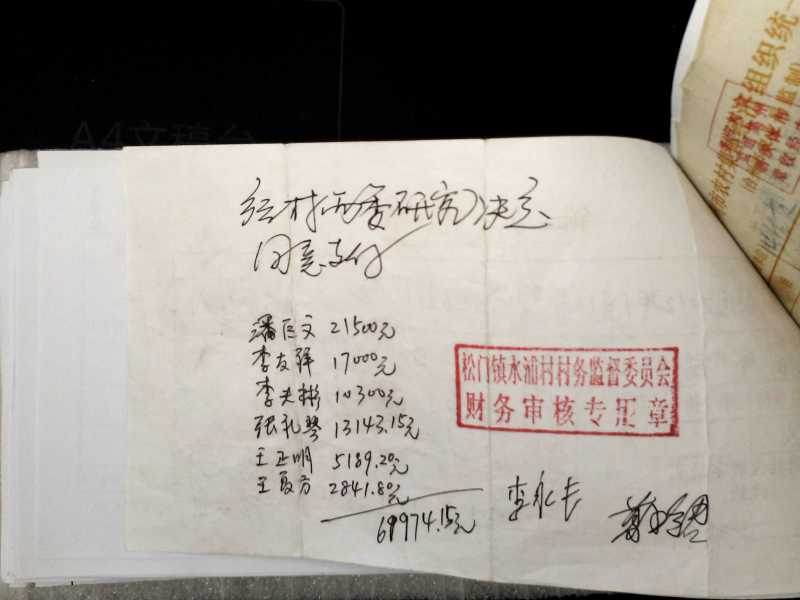 经村两委研究决定
同意支付
潘巨文 21500元
李友祥 17000元
李夫彬 10300元
张礼琴 13143.15元
王正明 5189.20元
王夏方 2841.80元
69974.15元
松门镇水浦村村务监督委员会
财务审核专用章
李永长
A4文稿台
组织统一